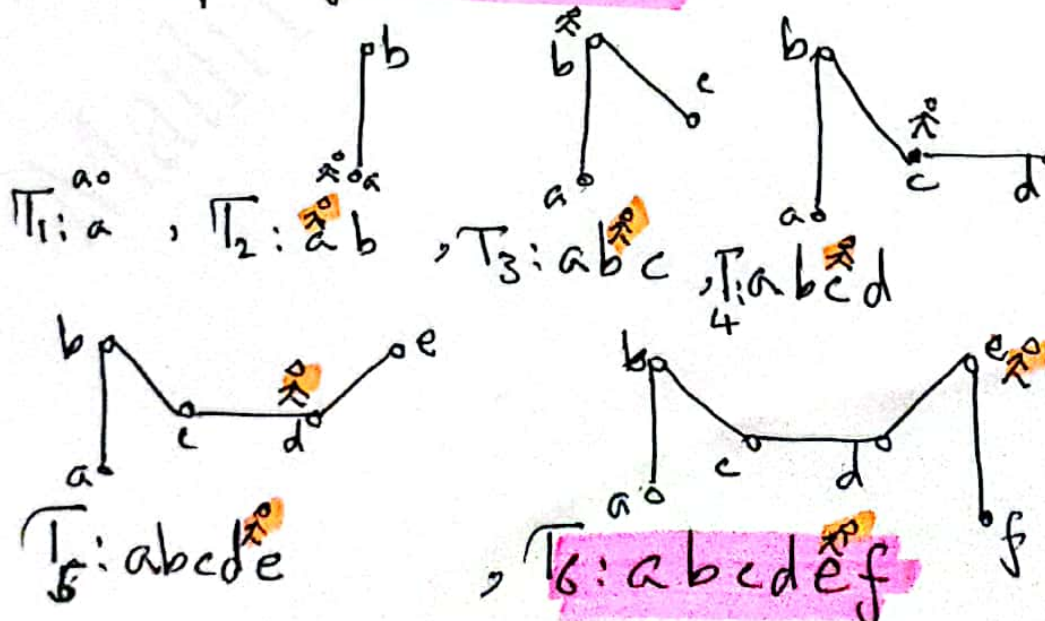 b
b
c
b
a
a
c
d
a
a
T1: a , T2: ab , T3: abc , T4: abcd
b
e
c
d
a
b
e
c
d
a
f
T5: abcde , T6: abcdef